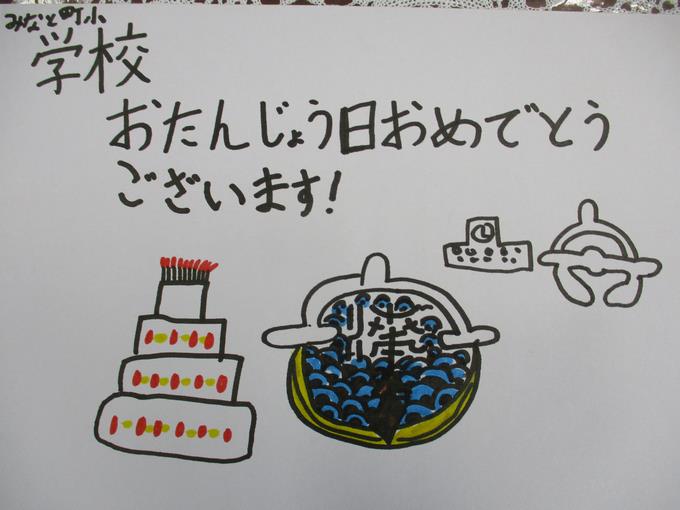 みなと町小
学校
おたんじょう日おめでとう
ございます!